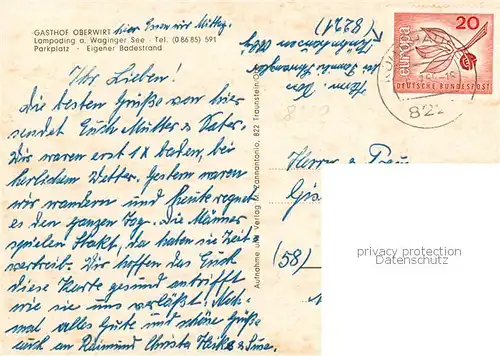 GASTHOF OBERWIRT
Lampoding a. Waginger See · Tel. (0 86 85) 591
Parkplatz · Eigener Badestrand
hier Essen wir Mittag.
(8221)
Ihr Lieben!
Die besten Grüße von hier
sendet Euch Mutter & Vater.
Wir waren erst 1x baden, bei
herlichem Wetter. Gestern waren
wir wandern und heute regnet
es den ganzen Tag. Die Männer
spielen Skakt, da haben sie Zeit
vertreib. Wir hoffen das Euch
diese Karte gesund antrifft
wie sie uns verläßt. Noch-
mal alles Gute und schöne Grüße
auch an Raimund Christa Heike & Suse.
Aufnahme und Verlag M. Zannantonio, 822 Traunstein/Ob
europa
20
DEUTSCHE BUNDESPOST
822
Herrn & Frau
Gis
(58)
privacy protection
Datenschutz